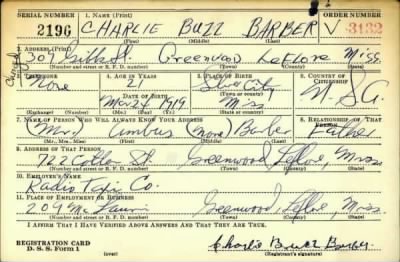 SERIAL NUMBER 1. NAME (Print) ORDER NUMBER
2196 CHARLIE BUZZ BARBER V 3132
(First) (Middle) (Last)
2. ADDRESS (Print)
309 Gibbs St. Greenwood Leflore Miss.
(Number and street or R. F. D. number) (Town) (County) (State)
3. TELEPHONE 4. AGE IN YEARS 5. PLACE OF BIRTH 6. COUNTRY OF CITIZENSHIP
None 21 City U.S.A
DATE OF BIRTH
Mar 24 1919 Miss
(Exchange) (Number) (Mo.) (Day) (Yr.) (State or country)
7. NAME OF PERSON WHO WILL ALWAYS KNOW YOUR ADDRESS 8. RELATIONSHIP OF THAT PERSON
(Mr.) (None) Barber Father
(Mr., Mrs., Miss) (First) (Middle) (Last)
9. ADDRESS OF THAT PERSON
722 Cotton St. Greenwood Leflore, Miss
(Number and street or R. F. D. number) (Town) (County) (State)
10. EMPLOYER'S NAME
Radio Taxi Co.
11. PLACE OF EMPLOYMENT OR BUSINESS
209 McLaurin Greenwood Leflore, Miss
(Number and street or R. F. D. number) (Town) (County) (State)
I AFFIRM THAT I HAVE VERIFIED ABOVE ANSWERS AND THAT THEY ARE TRUE.
REGISTRATION CARD
D. S. S. Form 1 (over) Charlie Buzz Barber
(Registrant's signature)